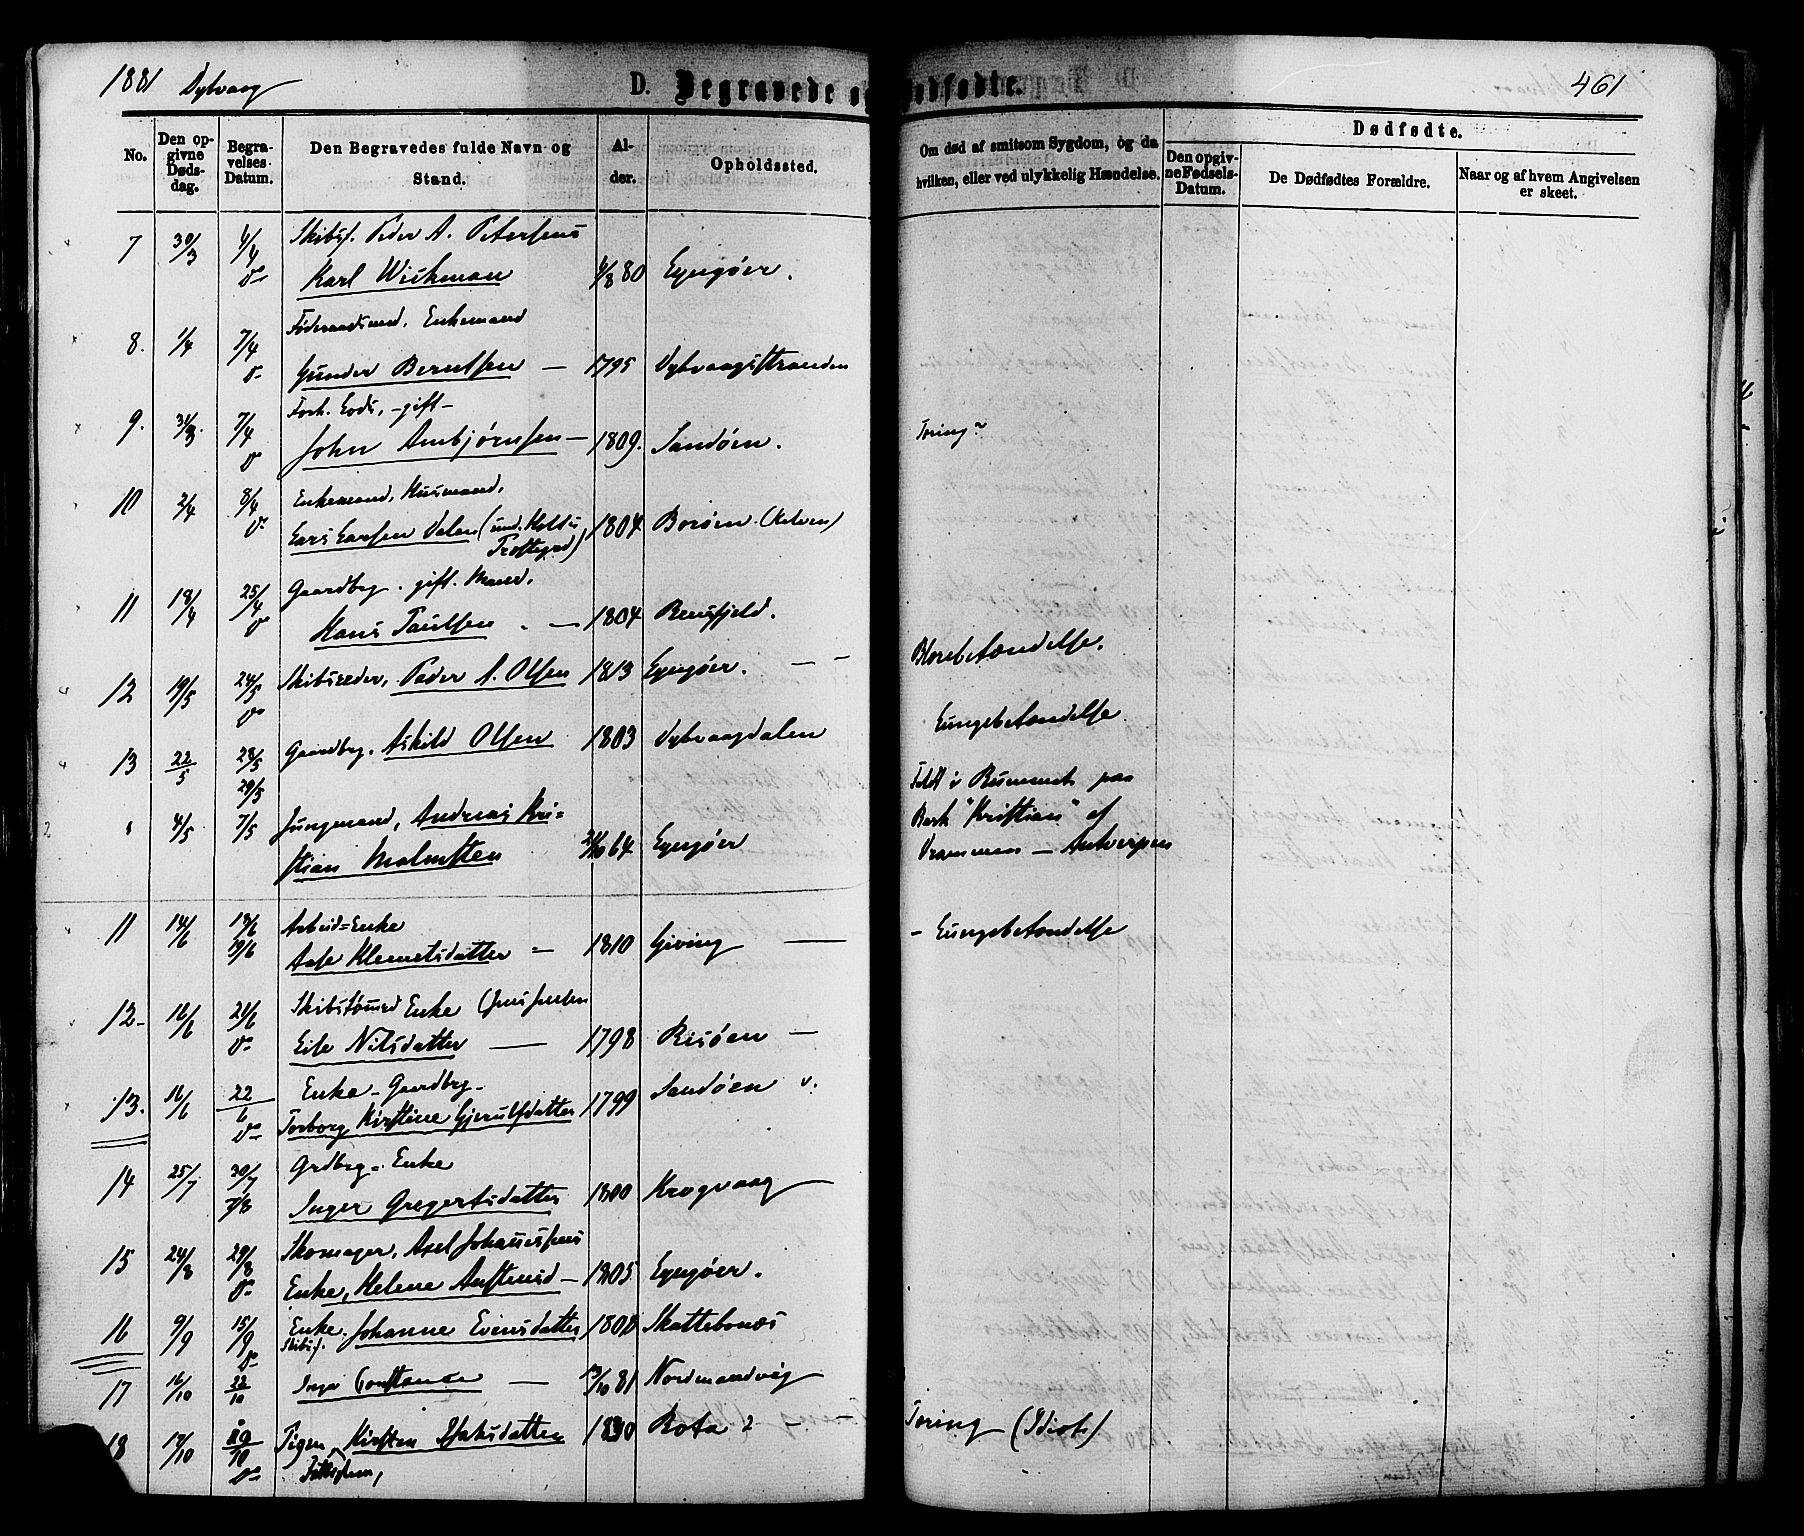 1881 Dybvaag
D. Begravede og Dødfødte.
461
No.
Den opgivne Dødsdag.
Begravelses-Datum.
Den Begravedes fulde Navn og Stand.
Alder.
Opholdssted.
Om død af smitsom Sygdom, og da hvilken, eller ved ulykkelig Hændelse.
Dødfødte.
Den opgivne Fødsels-Datum.
De Dødfødtes Forældre.
Naar og af hvem Angivelsen er skeet.
7 30/3 4/4 Skibsf. Peder A. Petersens
Karl Wichman 4/8 80 Lyngøer.
8. 1/4 7/4 Føderaadsmd, Enkemand
Gunder Berntsen — 1795 Dybvaagsstranden
9. 31/3 7/4 Forh. Lods, -gift-
John Ambjørnsen — 1809. Sandøen. Tæring
10 2/4 8/4 Enkemand, Husmand,
Lars Larsen Dalen (und. Holts Præstegjd) 1804 Borøen (Kilven)
11 18/4 25/4 Gaardbrg. gift. Mand.
Hans Taulsen — 1804 Rensfjeld.
12 19/5 24/5 Skibsreder, Peder A. Olsen 1813 Lyngøer. — — Blærebetændelse.
13 22/5 28/5 29/5 Gaardbrg. Askild Olsen 1803 Dybvaagdalen Lungebetændelse.
" 4/5 7/5 Jungmand, Andreas Kri=
stian Malmsten 64 Lyngøer
Faldt i Rummet paa
Bark "Kristian" af
Drammen — Antverpen
11 14/6 18/6 19/6 Arbeid=Enke
Aase Klemetsdatter — 1810 Giving — - Lungebetændelse
12- 16/6 21/6 Skibstømmd Enke
Eile Nilsdatter — 1798 Risøen —
13. 16/6 22/6 Enke - Gaardbrg-
Torborg Kirstine Gjerulfsdatter 1799 Sandøen
14 25/7 30/7 7/8 Grdbrg= Enke
Inger Gregertsdatter 1800 Krogvaag
15 24/8 29/8 Skomager, Axel Johannesens
Enke, Helene Anstensd — 1805 Lyngøer.
16 9/9 15/9 Enke. Johanne Evensdatter 1808 Skattebonæs
Skibsf.
17 16/10 22/10 Inga Constance — 13/10 81 Nordmandvig
18 17/10 Pigen, Kirsten Isaksdatter 1830 Rota
Tæring (Idiot)